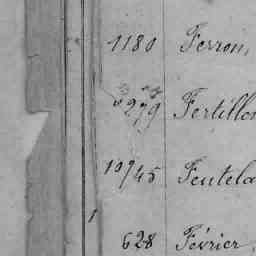 1180 Ferron,
279 Fertillon
1045 Feutela
1
628 Février,